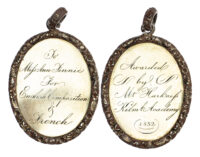 To
Miss Ann Rennie
For
English Composition
&
French
Awarded
by
Mr Harkness
Academy
1832